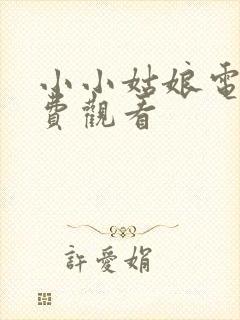 小小姑娘電
費觀看
許愛娟